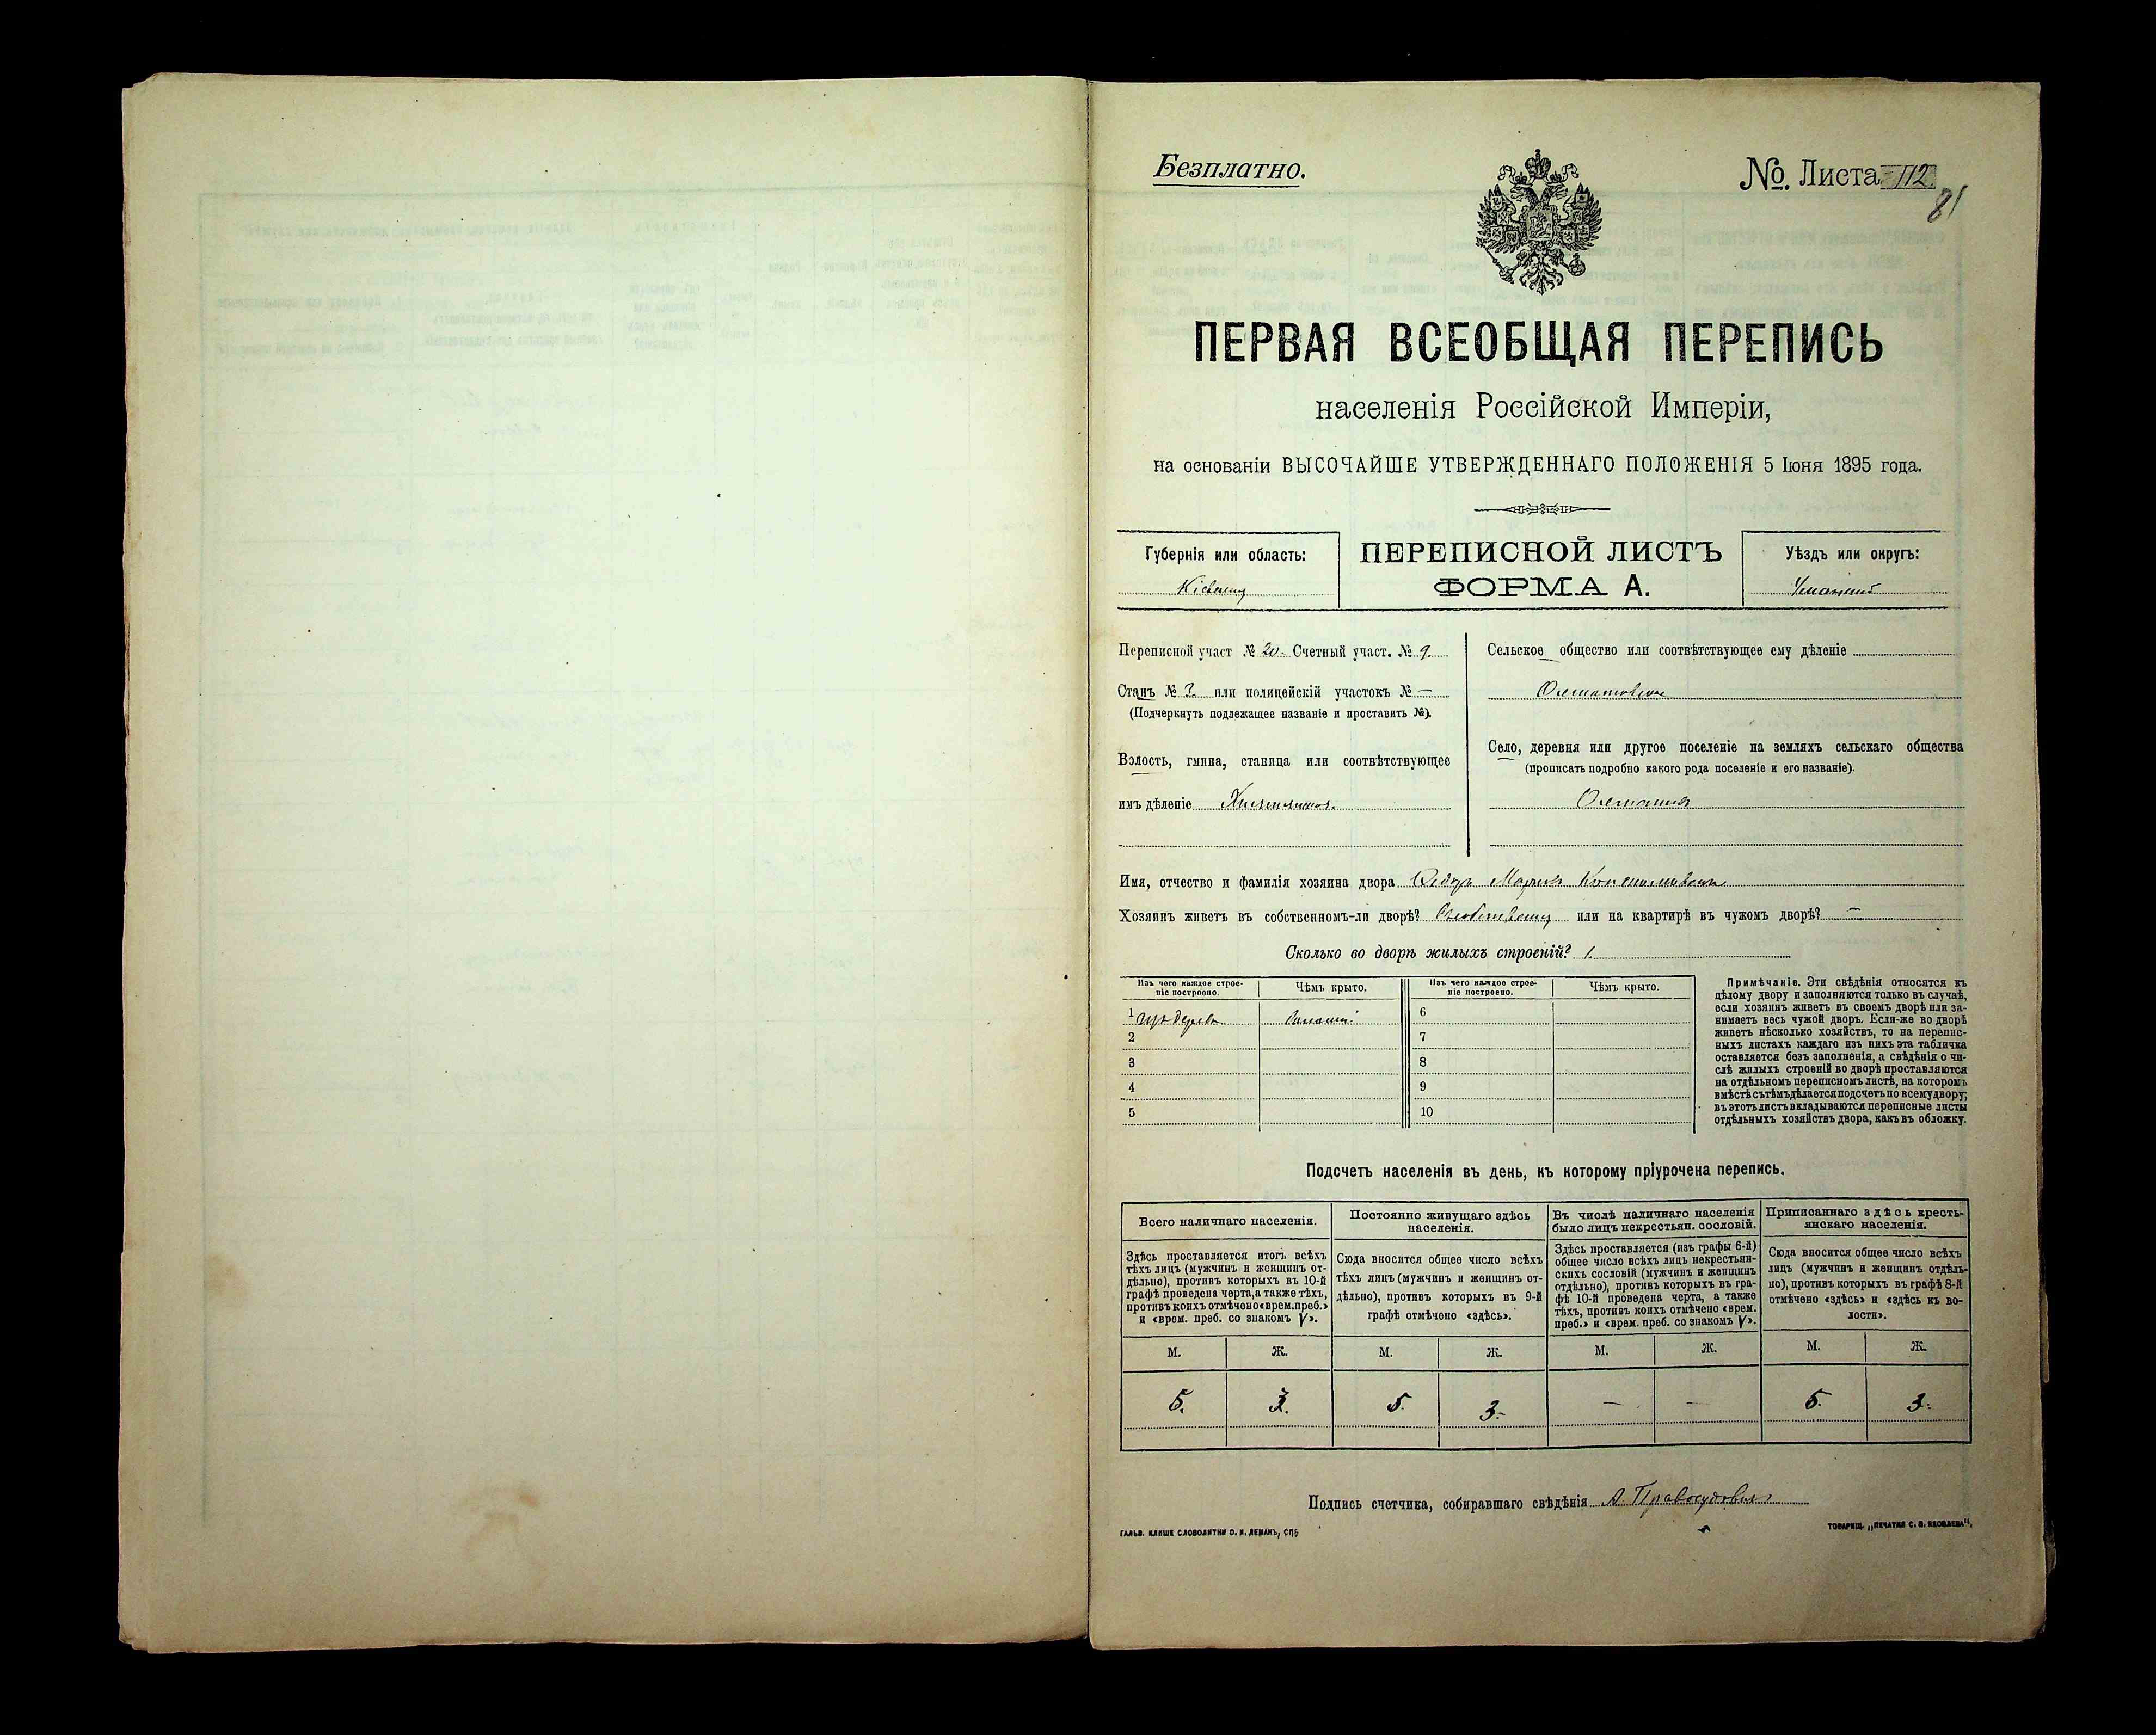 Безплатно.
№. Листа 112
81
ПЕРВАЯ ВСЕОБЩАЯ ПЕРЕПИСЬ
населенія Россійской Имперіи,
на основаніи ВЫСОЧАЙШЕ УТВЕРЖДЕННАГО ПОЛОЖЕНІЯ 5 Іюня 1895 года.
Губернія или область:
Кіевская
ПЕРЕПИСНОЙ ЛИСТЪ
ФОРМА А.
Уѣздъ или округъ:
Уманскій
Переписной участ № 20. Счетный участ. № 9.
Станъ № 3. или полицейскій участокъ № —
(Подчеркнуть подлежащее названіе и проставить №).
Волость, гмина, станица или соотвѣтствующее
имъ дѣленіе
Сельское общество или соотвѣтствующее ему дѣленіе
Село, деревня или другое поселеніе на земляхъ сельскаго общества
(прописать подробно какого рода поселеніе и его названіе).
Имя, отчество и фамилія хозяина двора
Хозяинъ живетъ въ собственномъ-ли дворѣ? или на квартирѣ въ чужомъ дворѣ? —
Сколько во дворѣ жилыхъ строеній? 1.
Изъ чего каждое строе-
ніе построено.
Чѣмъ крыто.
Изъ чего каждое строе-
ніе построено.
Чѣмъ крыто.
1 изъ дерева 6
2 7
3 8
4 9
5 10
Примѣчаніе. Эти свѣдѣнія относятся къ
цѣлому двору и заполняются только въ случаѣ,
если хозяинъ живетъ въ своемъ дворѣ или за-
нимаетъ весь чужой дворъ. Если-же во дворѣ
живетъ нѣсколько хозяйствъ, то на перепис-
ныхъ листахъ каждаго изъ нихъ эта табличка
оставляется безъ заполненія, а свѣдѣнія о чи-
слѣ жилыхъ строеній во дворѣ проставляются
на отдѣльномъ переписномъ листѣ, на которомъ
вмѣстѣ съ тѣмъ дѣлается подсчетъ по всему двору;
въ этотъ листъ вкладываются переписные листы
отдѣльныхъ хозяйствъ двора, какъ въ обложку.
Подсчетъ населенія въ день, къ которому пріурочена перепись.
Всего наличнаго населенія.
Здѣсь проставляется итогъ всѣхъ
тѣхъ лицъ (мужчинъ и женщинъ от-
дѣльно), противъ которыхъ въ 10-й
графѣ проведена черта, а также тѣхъ,
противъ коихъ отмѣчено «врем. преб.»
и «врем. преб. со знакомъ V».
Постоянно живущаго здѣсь
населенія.
Сюда вносится общее число всѣхъ
тѣхъ лицъ (мужчинъ и женщинъ от-
дѣльно), противъ которыхъ въ 9-й
графѣ отмѣчено «здѣсь».
Въ числѣ наличнаго населенія
было лицъ некрестьян. сословій.
Здѣсь проставляется (изъ графы 6-й)
общее число всѣхъ лицъ некрестьян-
скихъ сословій (мужчинъ и женщинъ
отдѣльно), противъ которыхъ въ гра-
фѣ 10-й проведена черта, а также
тѣхъ, противъ коихъ отмѣчено «врем.
преб.» и «врем. преб. со знакомъ V».
Приписаннаго здѣсь кресть-
янскаго населенія.
Сюда вносится общее число всѣхъ
лицъ (мужчинъ и женщинъ отдѣль-
но), противъ которыхъ въ графѣ 8-й
отмѣчено «здѣсь» и «здѣсь къ во-
лости».
М. Ж. М. Ж. М. Ж. М. Ж.
5. 3. 5. 3. — — 5. 3.
Подпись счетчика, собиравшаго свѣдѣнія А. Правосудовичъ
ГАЛЬВ. КЛИШЕ СЛОВОЛИТНИ О. И. ЛЕМАНЪ, СПБ
ТОВАРИЩ. „ПЕЧАТНЯ С. П. ЯКОВЛЕВА“.